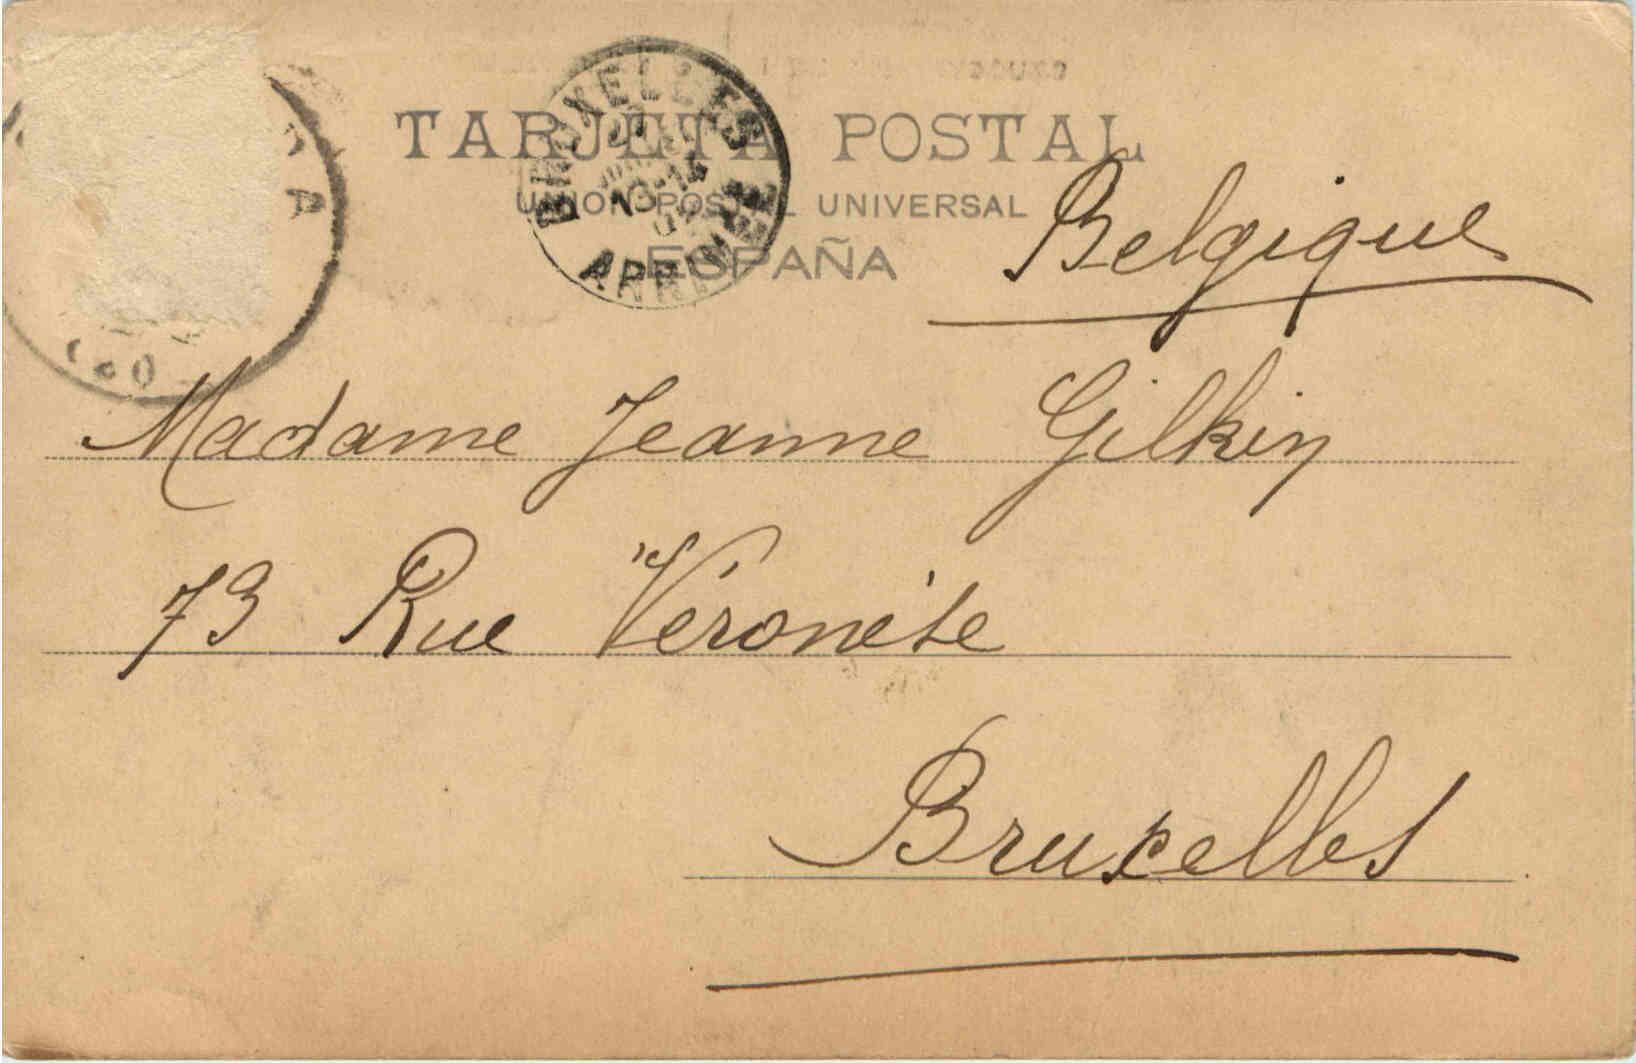 TARJETA POSTAL
UNION POSTAL UNIVERSAL
ESPAÑA
BRUXELLES
ARRIVÉE
Belgique
Madame Jeanne Gilkin
73 Rue Véronèse
Bruxelles